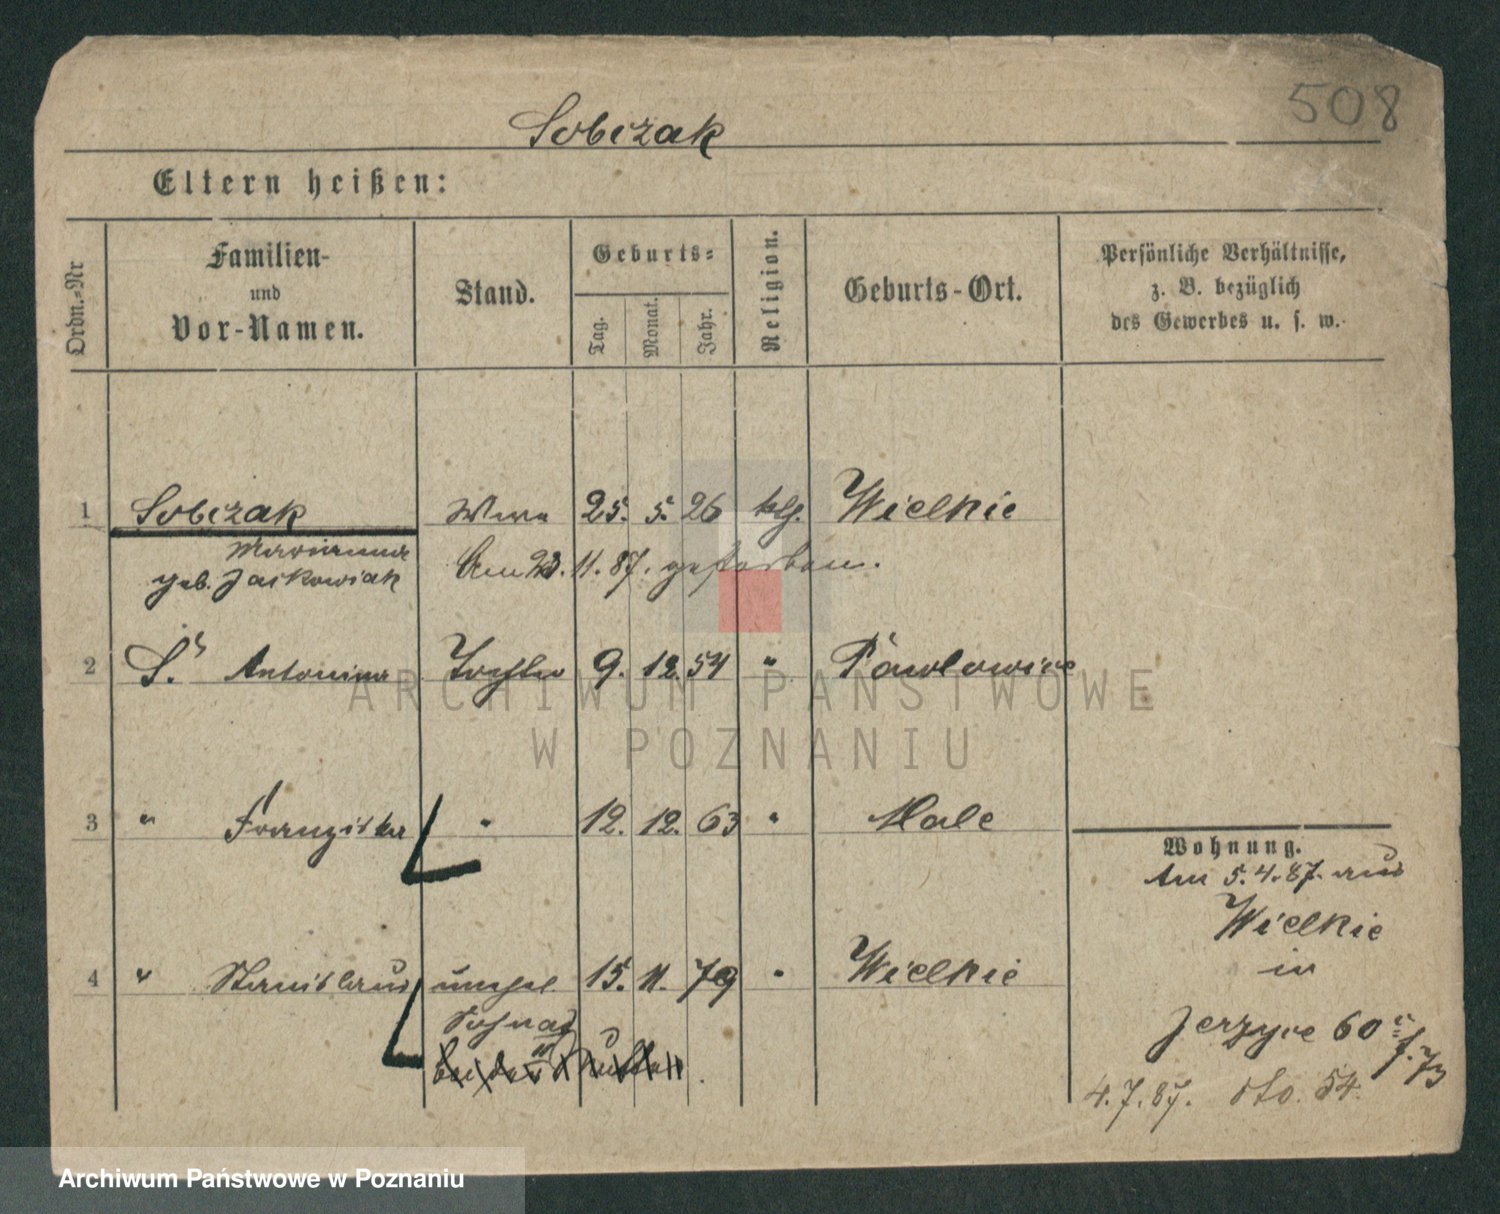 508
Sobczak
Eltern heißen:
Ordn.-Nr
Familien-
und
Vor-Namen.
Stand.
Geburts-
Tag.
Monat.
Jahr.
Religion.
Geburts-Ort.
Persönliche Verhältnisse,
z. B. bezüglich
des Gewerbes u. s. w.
1 Sobczak Wwe 25. 5. 26 Wielkie
Marianna
geb. Jaskowiak
Am 23. 11. 87. gestorben.
2 S. Antonina Tochter 9. 12. 54 " Pawlowice
3 " Franziska " 12. 12. 63 " Male
4 " Stanislaus unehel. 15. 11. 79 " Wielkie
Sohn ad
bei der Mutter.
Wohnung.
Am 5.4.87. aus
Wielkie
in
Jerzyce 60
4.7.87. dto. 54.
ARCHIWUM PAŃSTWOWE
W POZNANIU
Archiwum Państwowe w Poznaniu